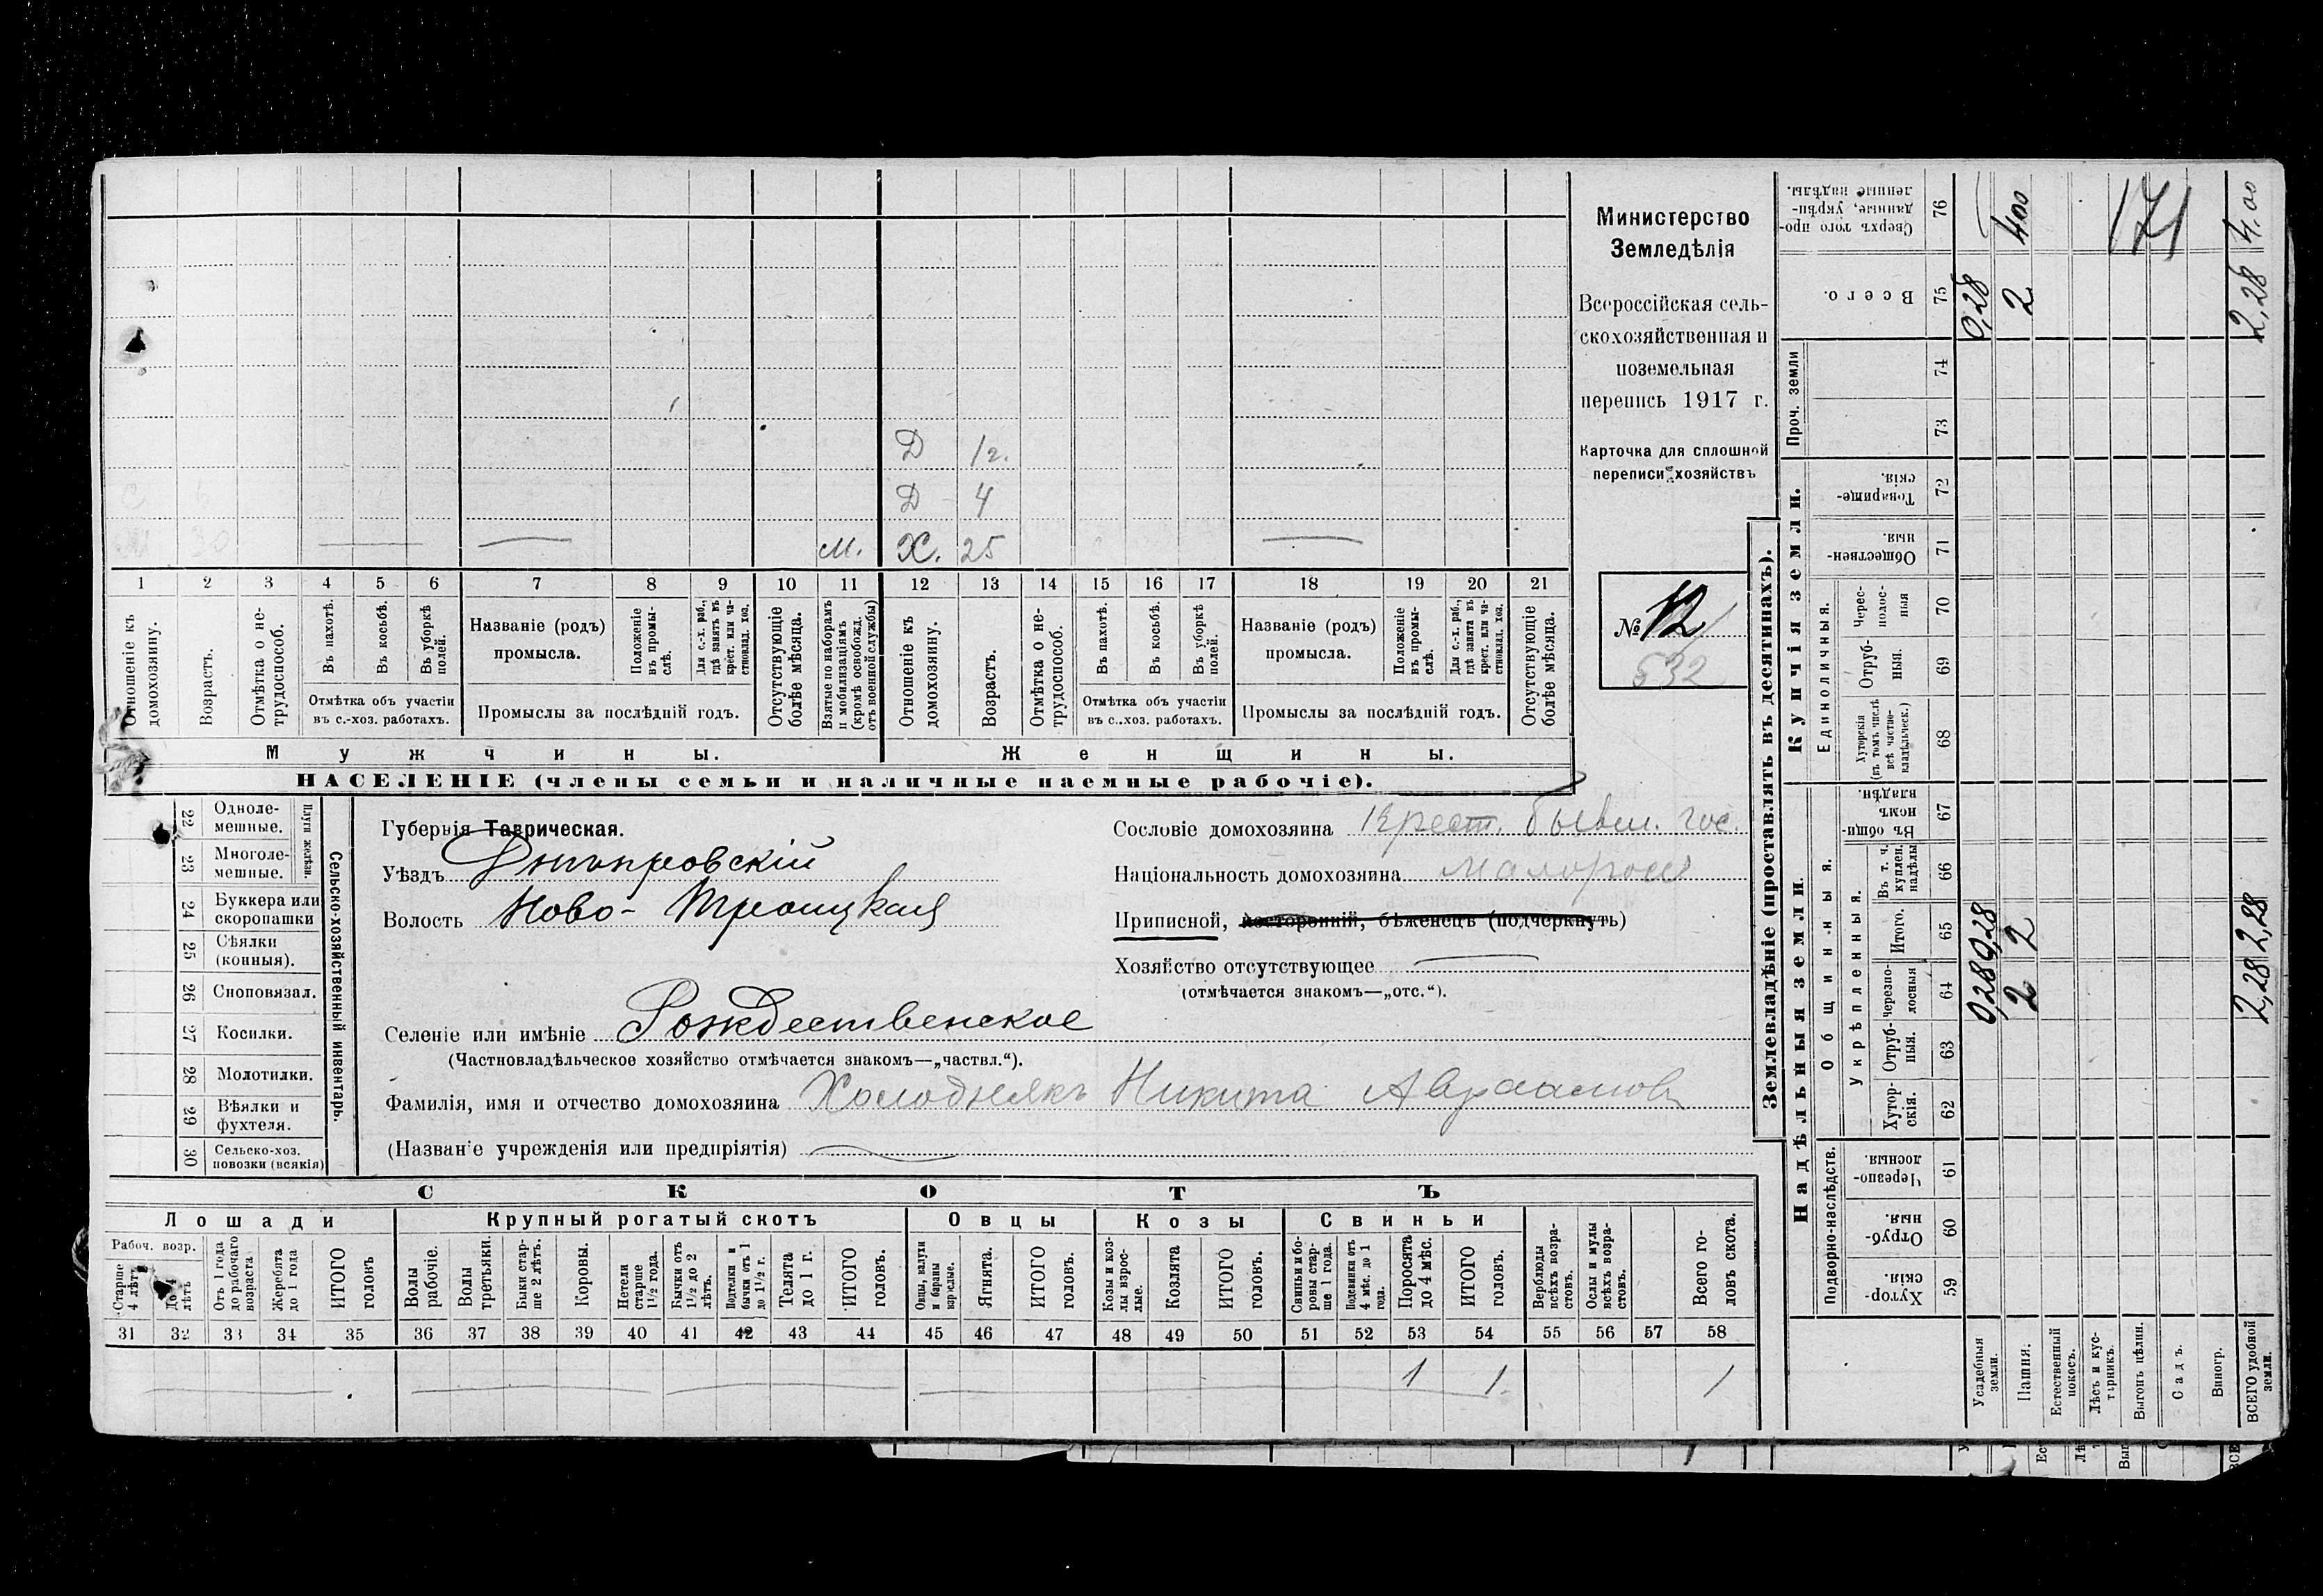 Министерство
Земледѣлія
Всероссійская сель-
скохозяйственная и
поземельная
перепись 1917 г.
Карточка для сплошной
переписи хозяйствъ
№ 12
532
Д 12.
Д 4
М. Х. 25
1 2 3 4 5 6 7 8 9 10 11 12 13 14 15 16 17 18 19 20 21
Отношеніе къ домохозяину.
Возрастъ.
Отмѣтка о не-трудоспособ.
Въ пахотѣ.
Въ косьбѣ.
Въ уборкѣ полей.
Отмѣтка объ участіи
въ с.-хоз. работахъ.
Названіе (родъ)
промысла.
Положеніе въ промы-слѣ.
Для с.-х. раб., гдѣ занятъ въ крест. или ча-стновлад. хоз.
Промыслы за послѣдній годъ.
Отсутствующіе болѣе мѣсяца.
Взятые по наборамъ и мобилизаціямъ (кромѣ освобожд. отъ военной службы)
Отношеніе къ домохозяину.
Возрастъ.
Отмѣтка о не-трудоспособ.
Въ пахотѣ.
Въ косьбѣ.
Въ уборкѣ полей.
Отмѣтка объ участіи
въ с.-хоз. работахъ.
Названіе (родъ)
промысла.
Положеніе въ промы-слѣ.
Для с.-х. раб., гдѣ занята въ крест. или ча-стновлад. хоз.
Промыслы за послѣдній годъ.
Отсутствующіе болѣе мѣсяца.
Мужчины.
Женщины.
НАСЕЛЕНІЕ (члены семьи и наличные наемные рабочіе).
Сельско-хозяйственный инвентарь.
Плуги желѣзн.
22 Одноле-мешные.
23 Многоле-мешные.
24 Буккера или скоропашки
25 Сѣялки (конныя).
26 Сноповязал.
27 Косилки.
28 Молотилки.
29 Вѣялки и фухтеля.
30 Сельско-хоз. повозки (всякія)
Губернія Таврическая.
Уѣздъ Днѣпровскій
Волость Ново-Троицкая
Селеніе или имѣніе Рождественское
(Частновладѣльческое хозяйство отмѣчается знакомъ—„частвл.“).
Фамилія, имя и отчество домохозяина Холоднякъ Никита Авраамовъ
(Названіе учрежденія или предпріятія)
Сословіе домохозяина Крест. бывш. гос.
Національность домохозяина Малороссъ
Приписной, посторонній, бѣженецъ (подчеркнуть)
Хозяйство отсутствующее
(отмѣчается знакомъ—„отс.“).
СКОТЪ
Лошади
Крупный рогатый скотъ
Овцы
Козы
Свиньи
Рабоч. возр.
Старше 4 лѣтъ
До 4 лѣтъ
Отъ 1 года до рабочаго возраста
Жеребята до 1 года
ИТОГО головъ
Волы рабочіе.
Волы третьяки.
Быки стар-ше 2 лѣтъ.
Коровы.
Нетели старше 1½ года.
Бычки отъ 1½ до 2 лѣтъ.
Подтелки и бычки отъ 1 до 1½ г.
Телята до 1 г.
ИТОГО головъ.
Овцы, валухи и бараны взрослые.
Ягнята.
ИТОГО головъ.
Козы и коз-лы взрос-лые.
Козлята
ИТОГО головъ.
Свиньи и бо-ровы стар-ше 1 года.
Подсвинки отъ 4 мѣс. до 1 года.
Поросята до 4 мѣс.
ИТОГО головъ.
Верблюды всѣхъ возра-стовъ.
Ослы и мулы всѣхъ возра-стовъ.
Всего го-ловъ скота.
31 32 33 34 35 36 37 38 39 40 41 42 43 44 45 46 47 48 49 50 51 52 53 54 55 56 57 58
1 1 1
Землевладѣніе (проставлять въ десятинахъ).
Надѣльныя земли.
Купчія земли.
Проч. земли
Подворно-наслѣдств.
Общинныя.
Укрѣпленныя.
Единоличныя.
Хутор-скія. 59
Отруб-ныя. 60
Черезпо-лосныя. 61
Хутор-скія. 62
Отруб-ныя. 63
Черезпо-лосныя 64
Итого. 65
Въ т. ч. куплен. надѣлы 66
Въ общин-номъ владѣн. 67
Хуторскія (въ томъ числѣ всѣ частно-владѣльческ.) 68
Отруб-ныя. 69
Черес-полос-ныя 70
Обществен-ныя. 71
Товарище-скія. 72
73
74
Всего. 75
Сверхъ того про-данные, укрѣп-ленные надѣлы. 76
Усадебныя земли. 0,28 0,28 0,28
Пашня. 2 2 2 4,00
Естественный покосъ.
Лѣсъ и кус-тарникъ.
Выгонъ цѣлин.
Садъ.
Виногр.
ВСЕГО удобной земли. 2,28 2,28 2,28 4,00
171